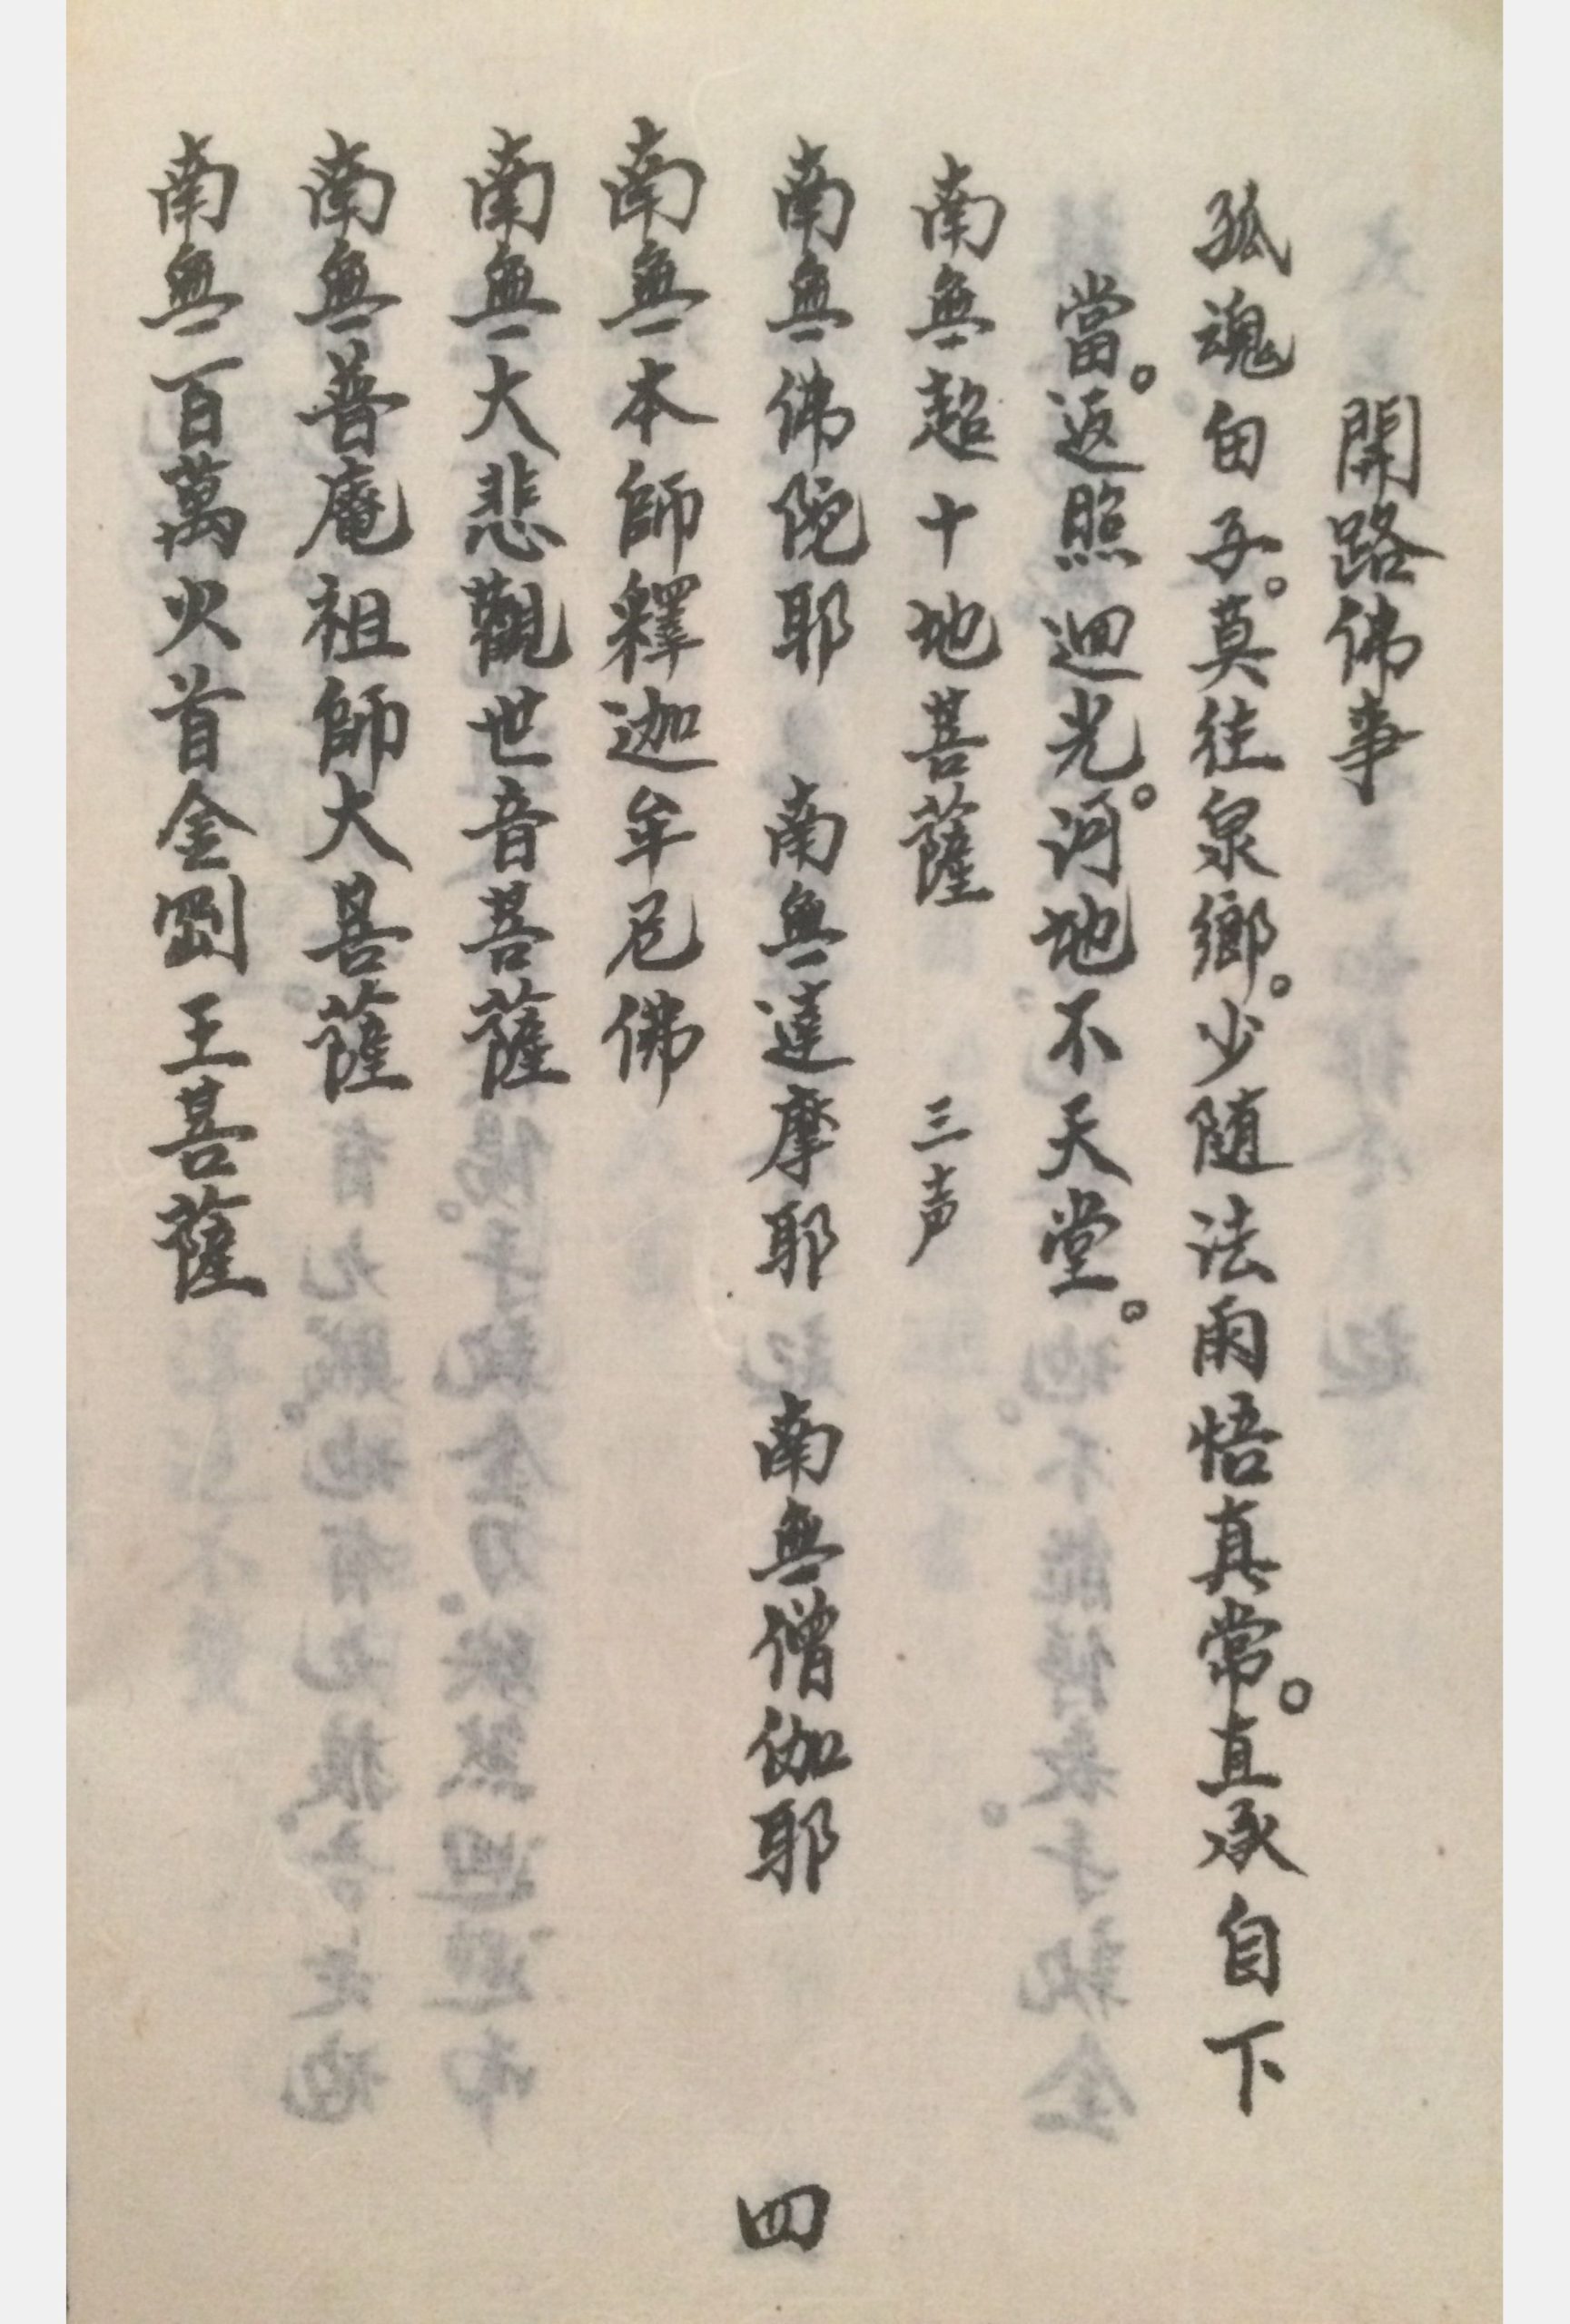 開路佛事
孤魂由子。莫往泉鄉。少随法雨悟真常。直承自下
當。返照迴光。河地不天堂。
南無超十地菩薩 三声
南無佛陀耶 南無達摩耶 南無僧伽耶
南無本師釋迦牟尼佛
南無大悲觀世音菩薩
南無普庵祖師大菩薩
南無百萬火首金剛王菩薩
四